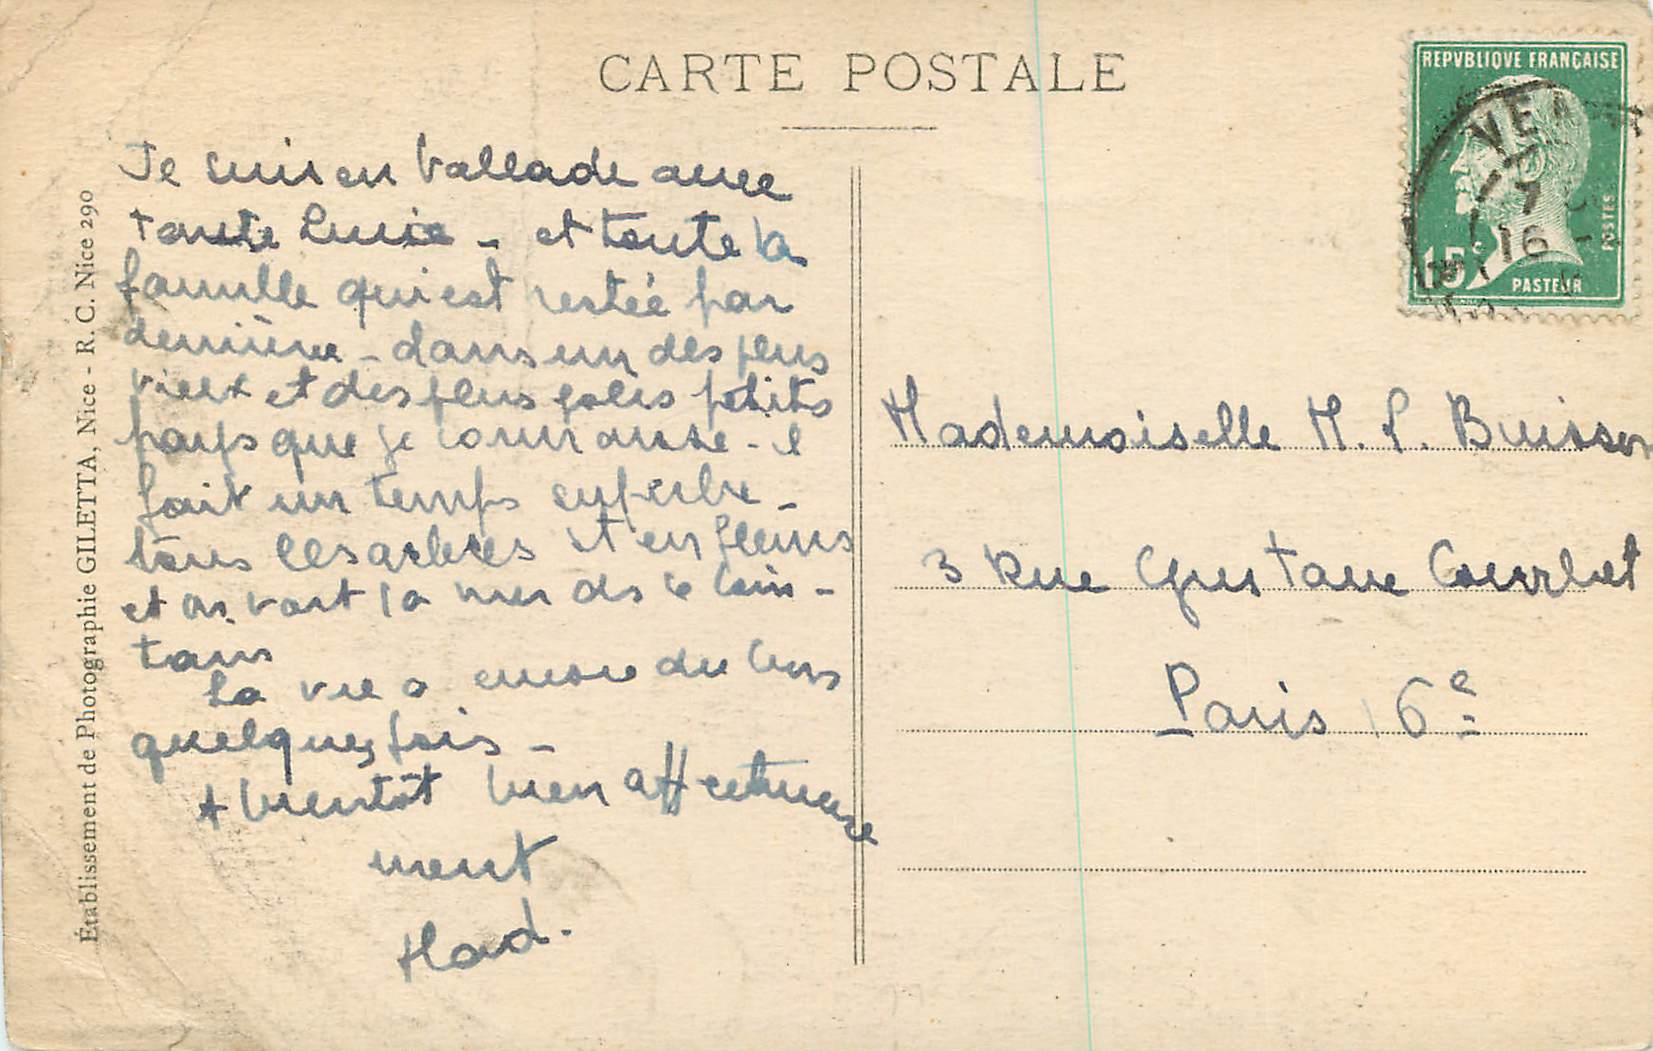 CARTE POSTALE
REPVBLIQVE FRANÇAISE
POSTES
15c
PASTEUR
VEN
7
16
Établissement de Photographie GILETTA, Nice - R. C. Nice 290
Je suis en ballade avec
tante Lucie - et toute la
famille qui est restée par
derrière - dans un des plus
vieux et des plus jolis petits
pays que je connaisse - il
fait un temps superbe -
tous les arbres et en fleurs
et on voit la mer ds le loin-
tain
La vie a encore du bons
quelques fois -
A bientôt bien affectueuse
ment
Mad.
Mademoiselle M. L. Buisson
3 Rue Gustave Courbet
Paris 16e